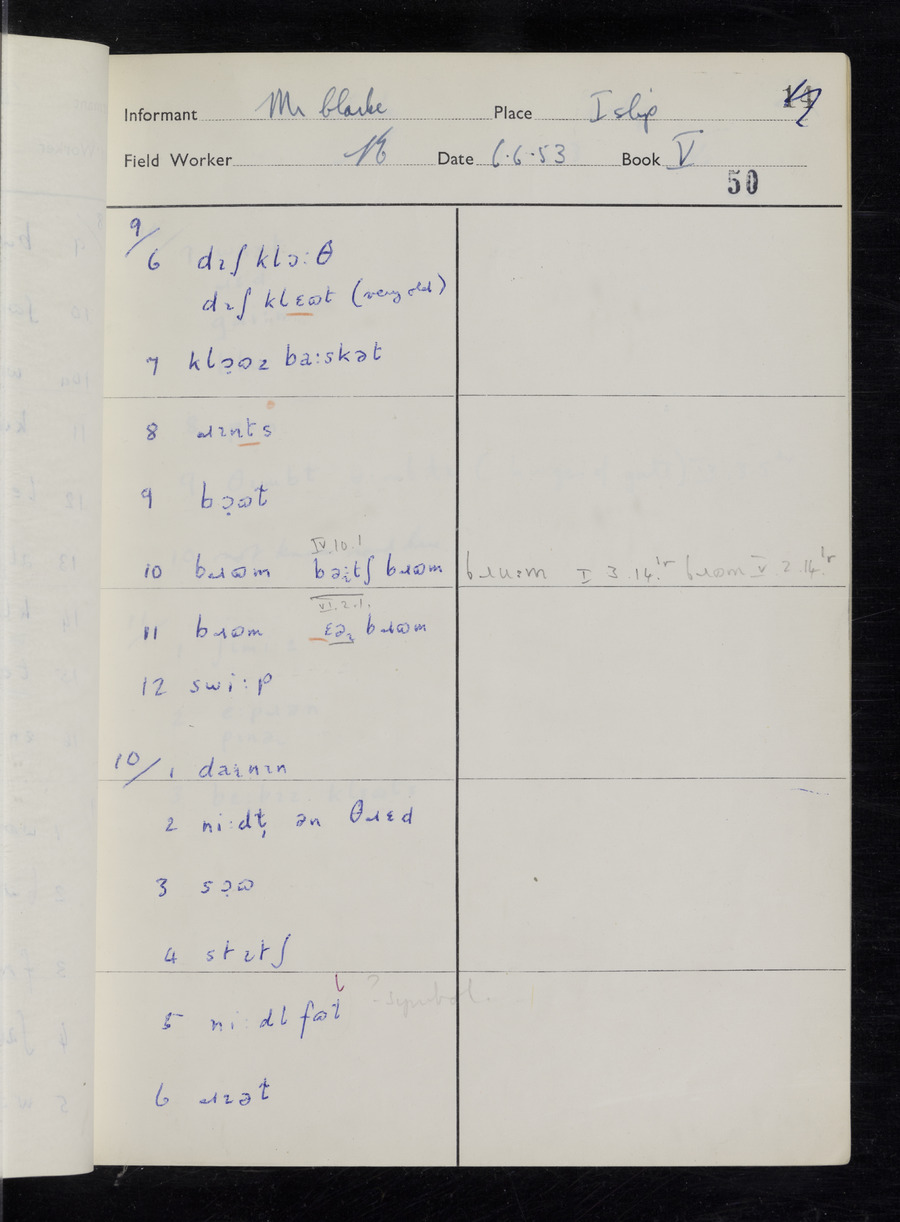 Informant Mr Clarke Place Islip
Field Worker Date 6.6.53 Book V
50
9/
6 dɪʃ klɔ:θ
dɪʃ klɛɷt (very old)
7 klɔ̣ɷz ba:skət
8 ɹɪnts
9 bɔ̣ɷt
IV.10.1
10 bɹɷm bəi:tʃ bɹɷm bɹu:m I 3.14. bɹɷm V 2.14.
VI.2.1.
11 bɹɷm ɛəɹ bɹɷm
12 swi:p
10/
1 daɪnɪn
2 ni:dɫ̩ ən θɹɛd
3 sɔ̣ɷ
4 stɪtʃ
5 ni:dl fɷɫ ? symbol.
6 ɹɪət